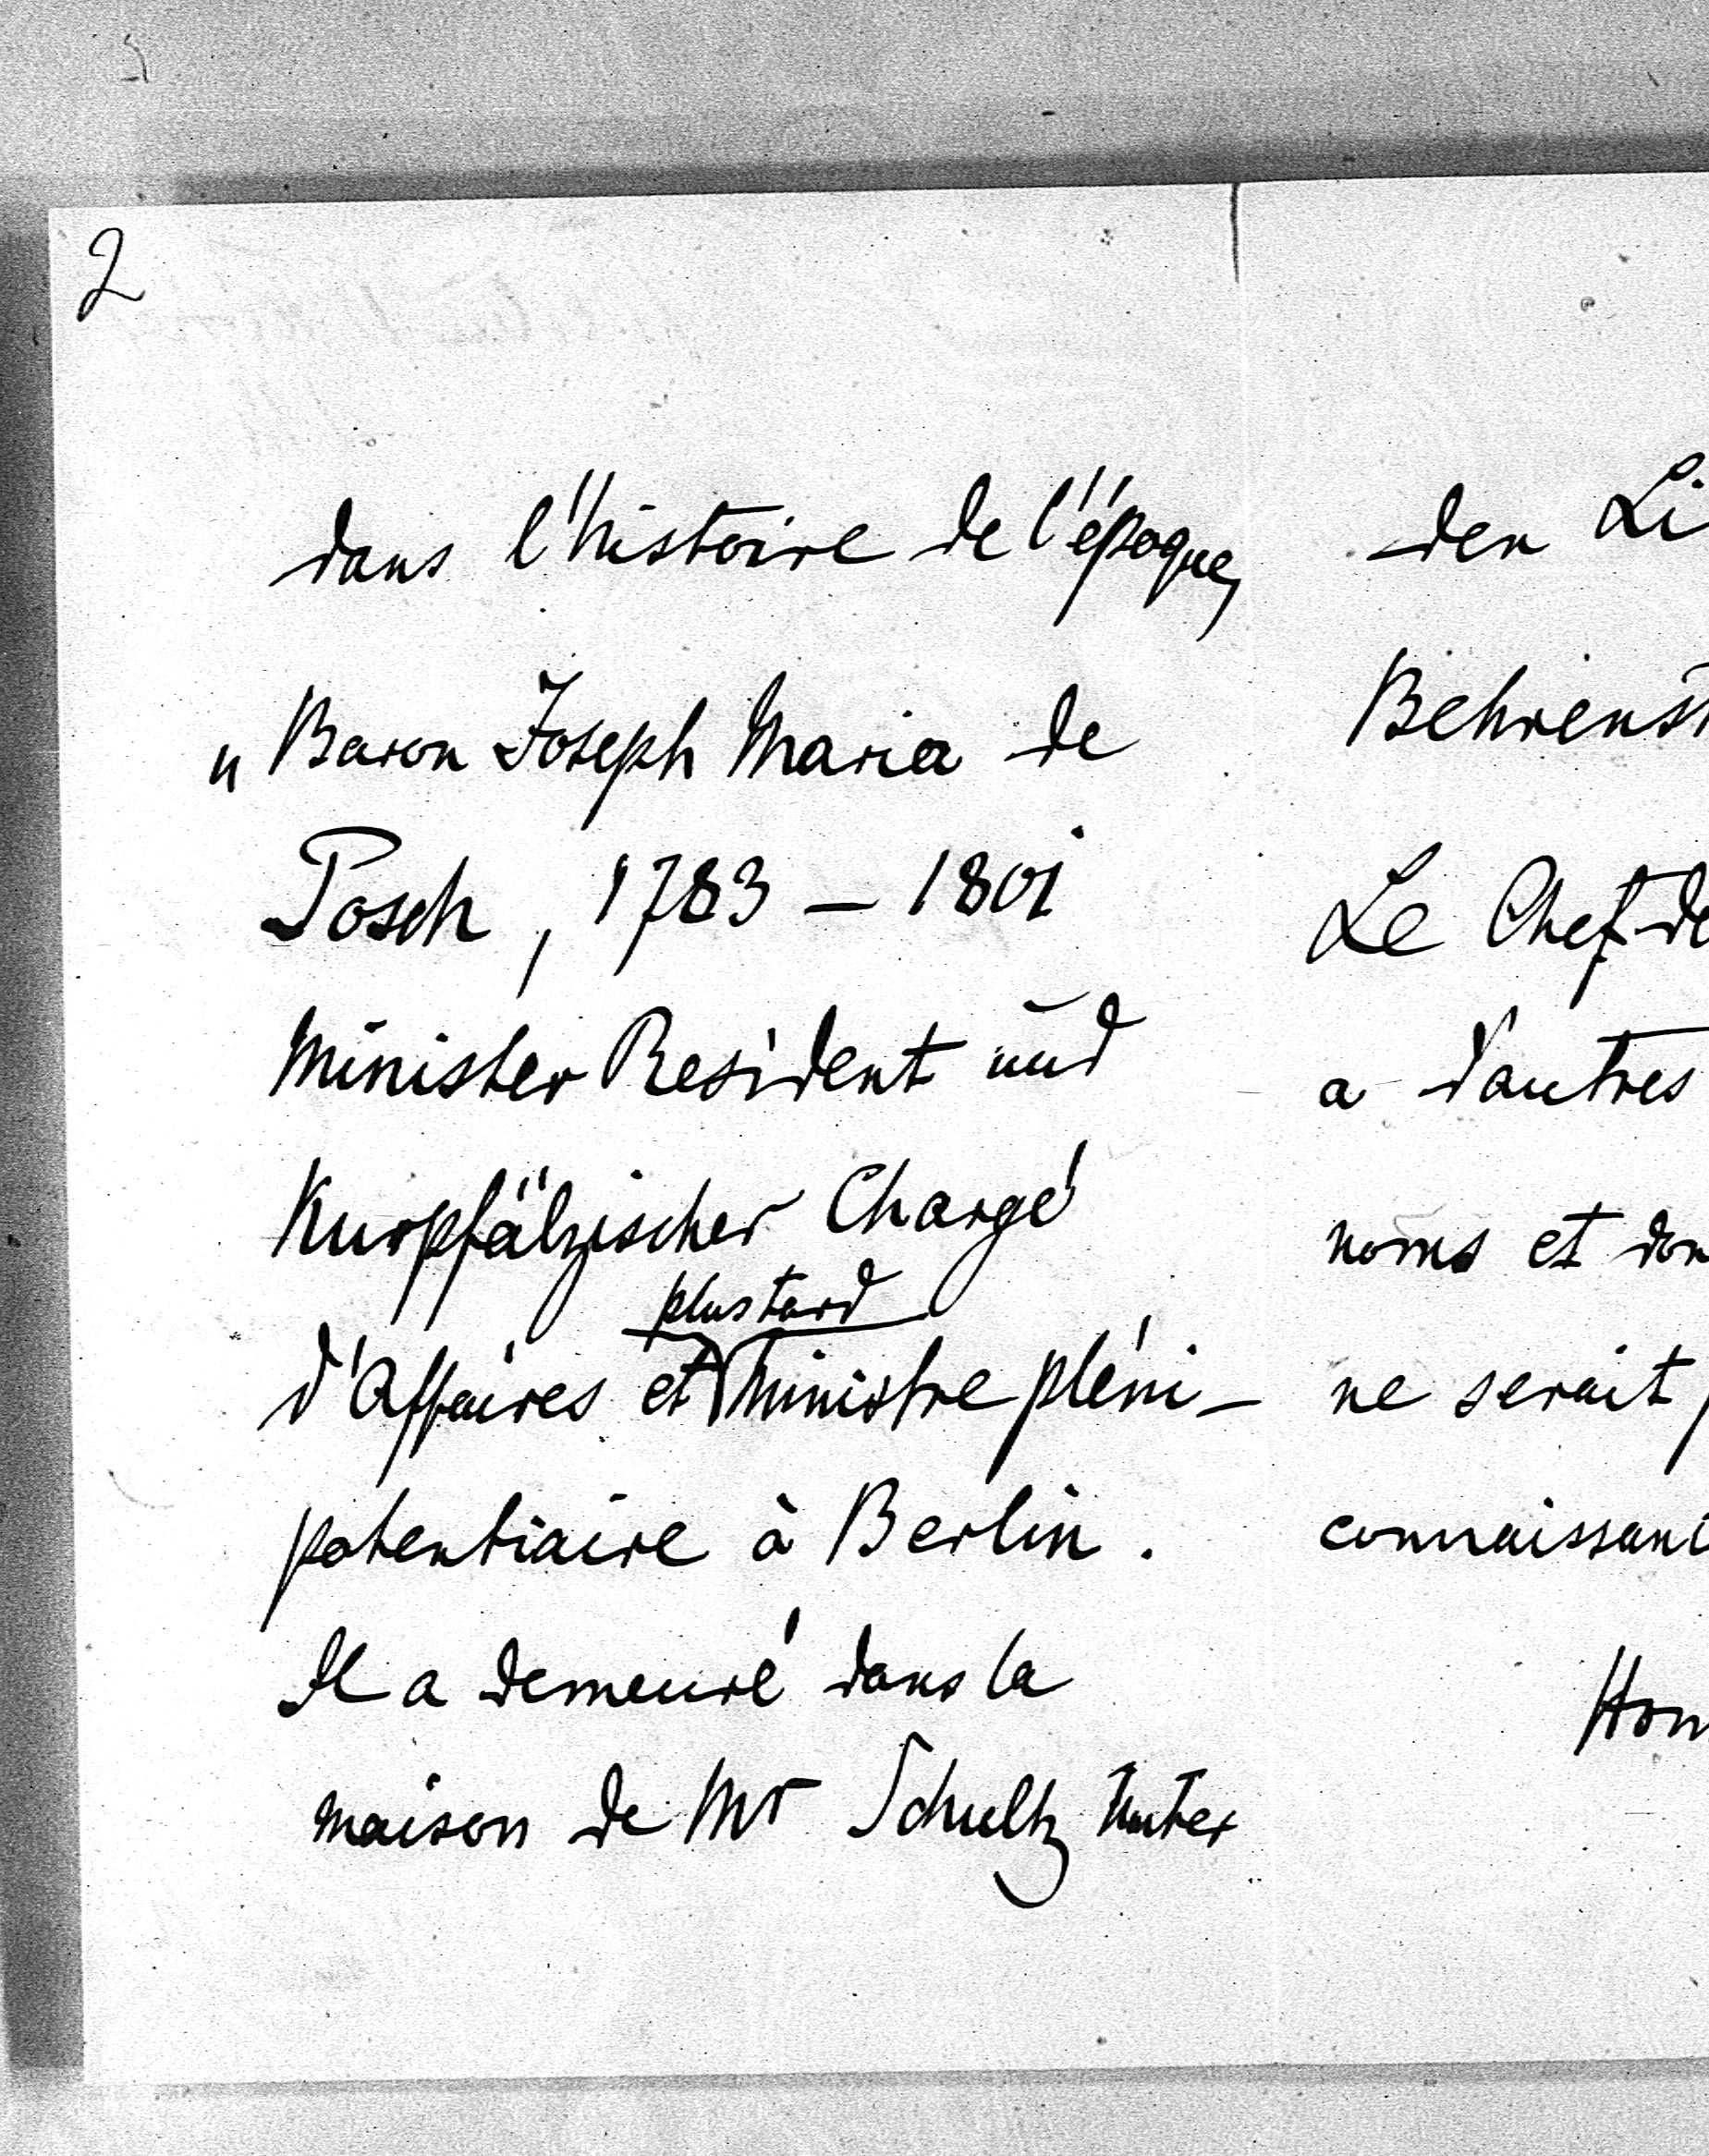 2
dans l'histoire de l'époque,
„Baron Joseph Maria de
Posch, 1783 — 1801
Minister Resident und
Kurpfälzischer Chargé
plus tard
d'Affaires et Ministre pléni-
potentiaire à Berlin.
Il a demeuré dans la
maison de Mr Schultz Unter
den Li
Behrenst
Le Chef de
a d'autres
noms et don
ne serait p
connaissanc
Hom